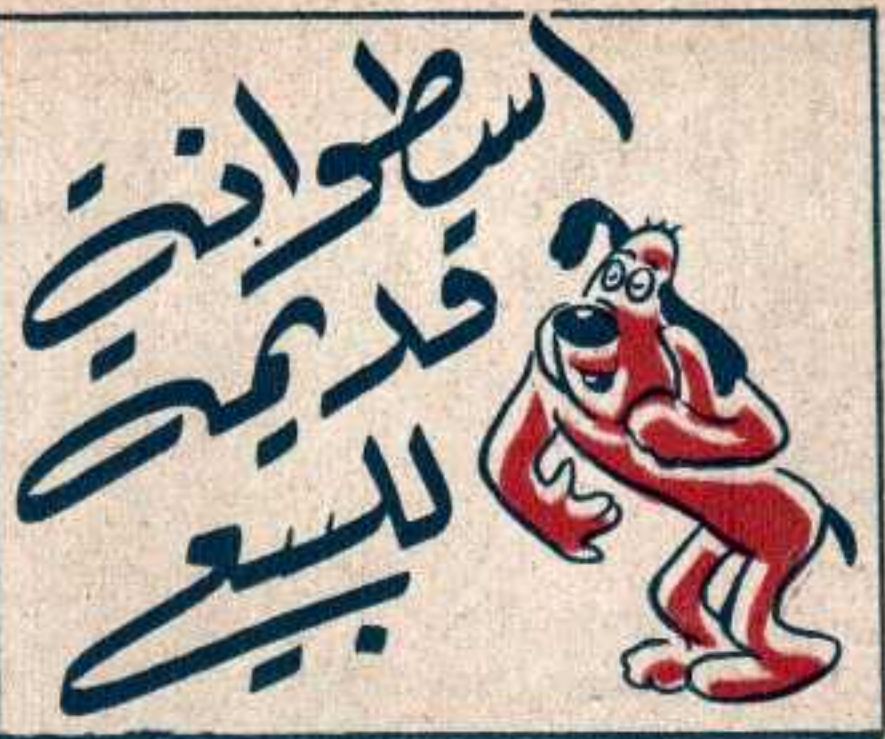 اسطوانة
قديمة
للبيع